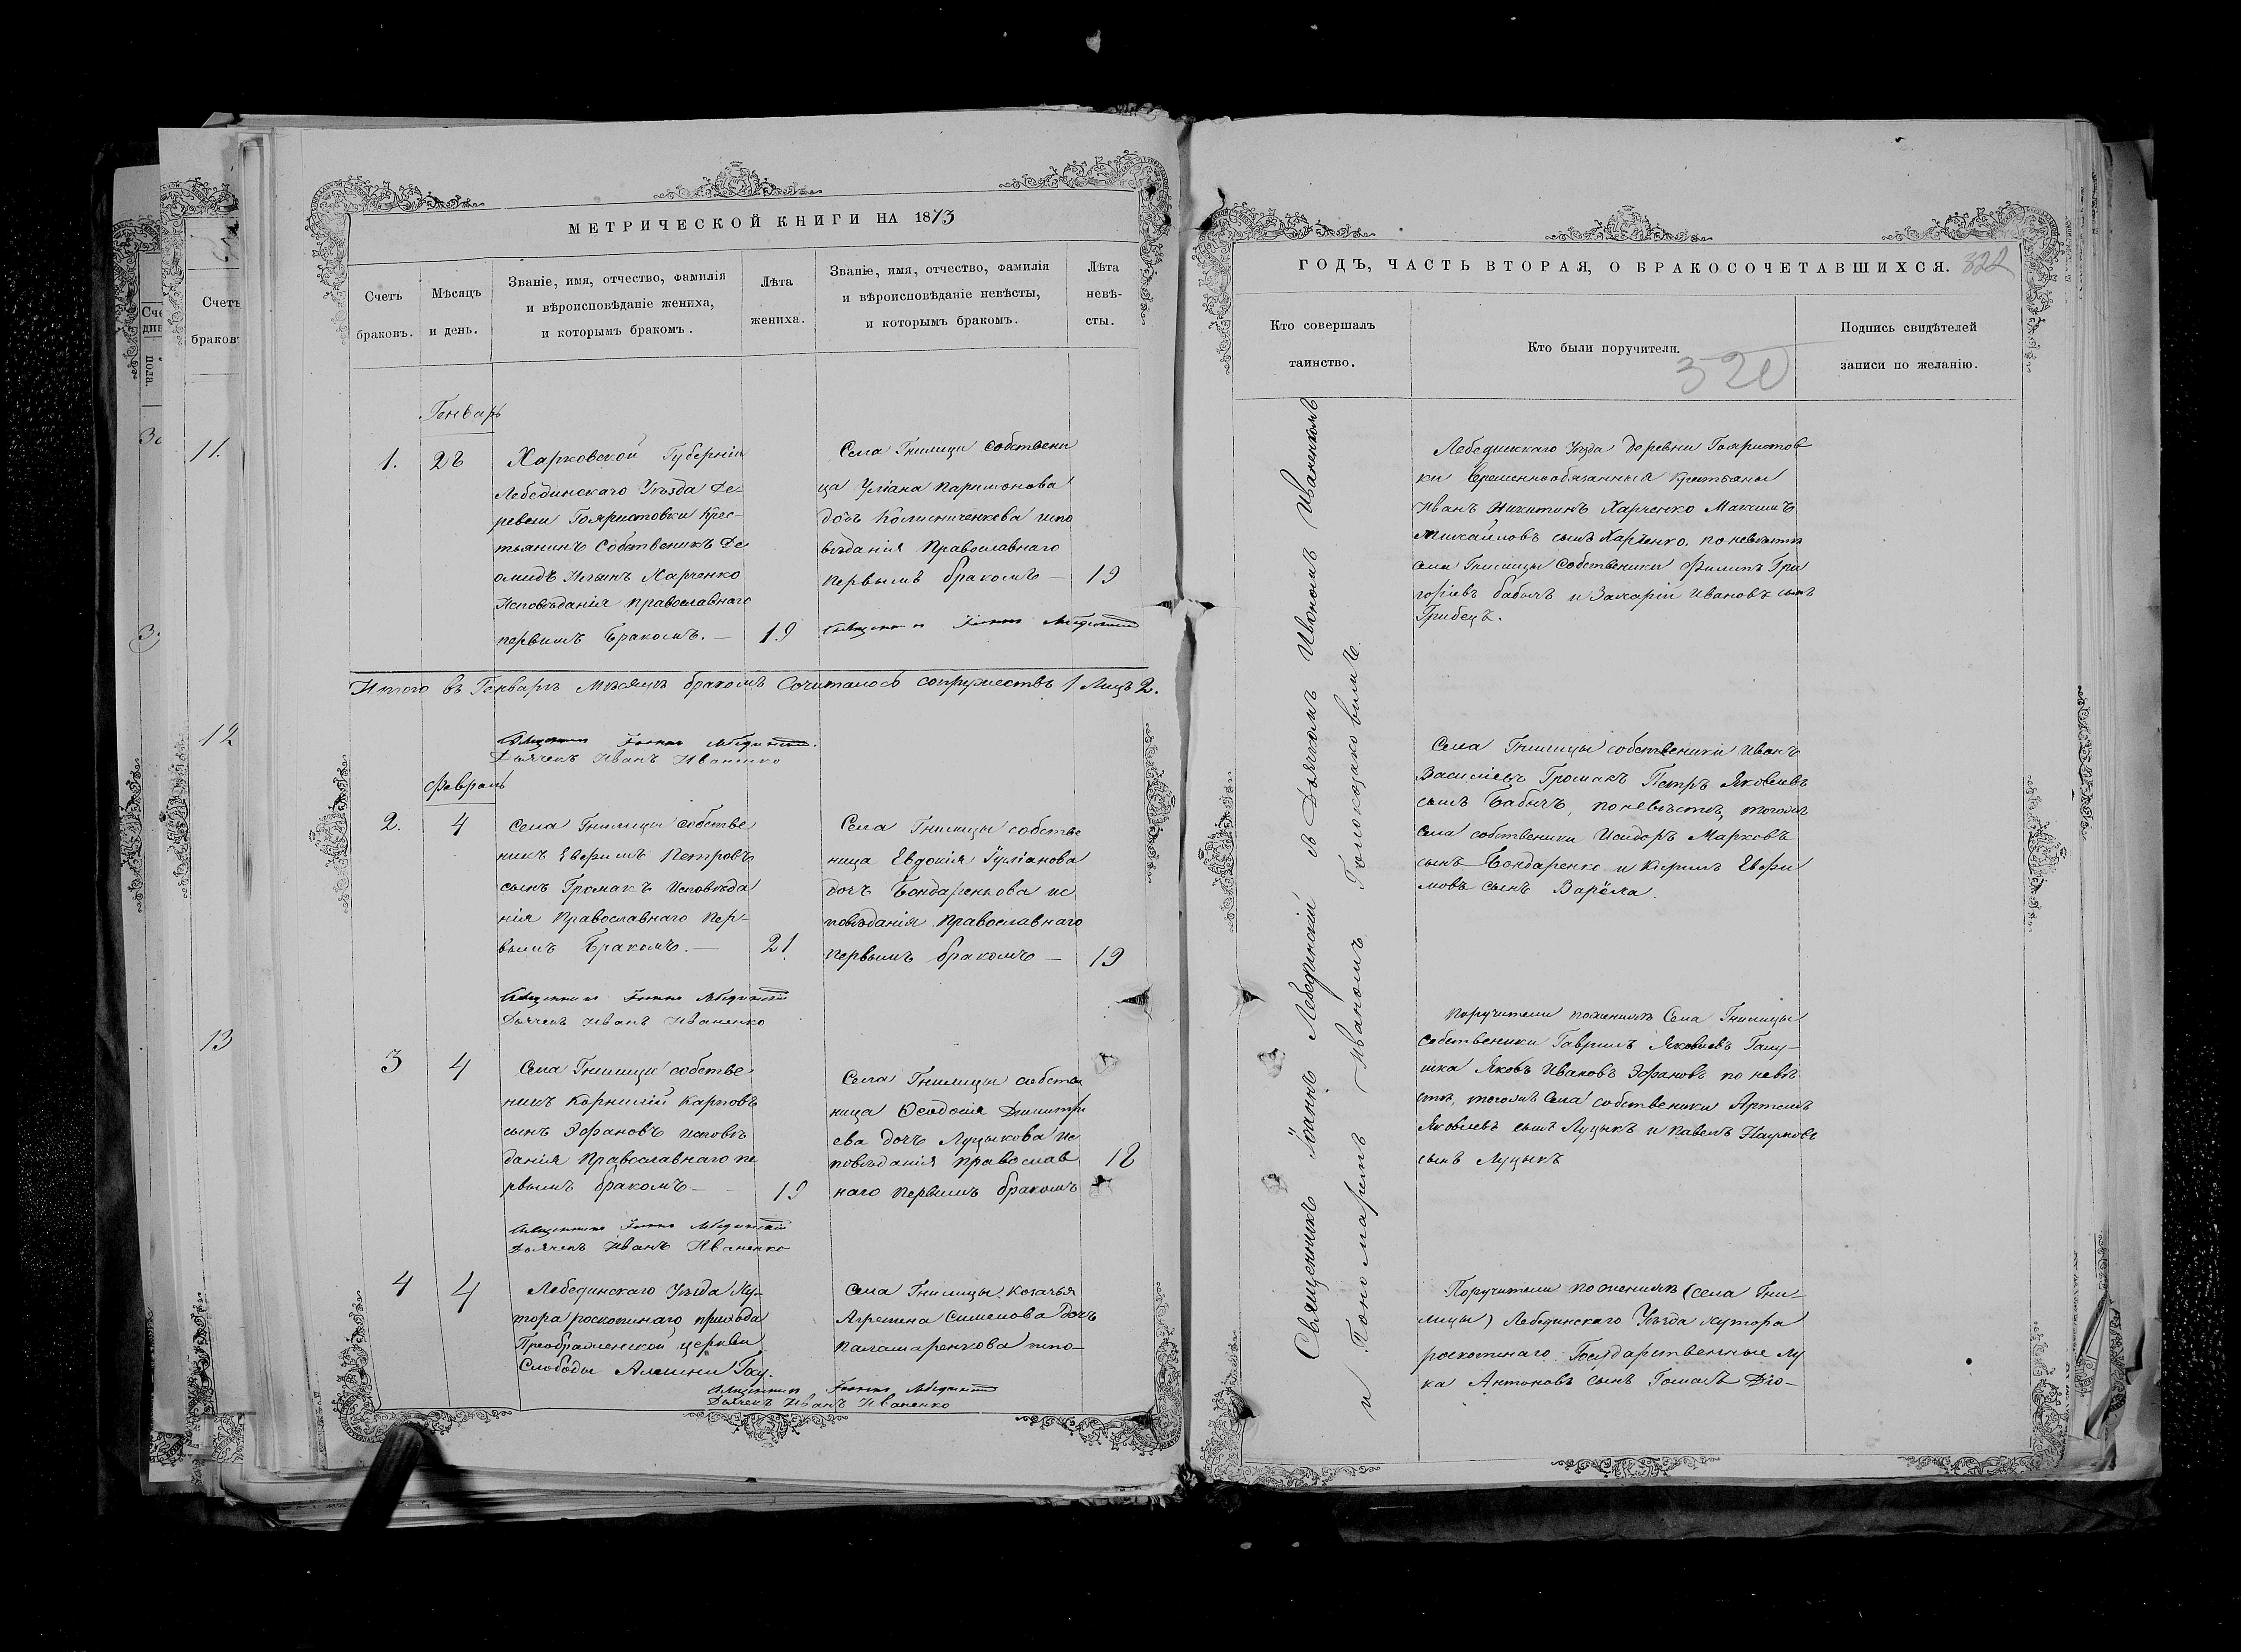 МЕТРИЧЕСКОЙ КНИГИ НА 1873
Счетъ
браковъ.
Мѣсяцъ
и день.
Званіе, имя, отчество, фамилія
и вѣроисповѣданіе жениха,
и которымъ бракомъ.
Лѣта
жениха.
Званіе, имя, отчество, фамилія
и вѣроисповѣданіе невѣсты,
и которымъ бракомъ.
Лѣта
невѣ-
сты.
Генварь
1.
Харковской Губерніи
Лебединскаго Уѣзда Де-
ревни Гояристовки Крес-
тьянинъ Собственикъ Де
омидъ Ильинъ Харченко
Исповѣданія православнаго
первымъ Бракомъ. —
19
Села Гнилицы собствени
ца Уліана Паримонова
дочь Колисниченкова испо
вѣданія Православнаго
первымъ бракомъ —
19
Священникъ Іоаннъ Лебединскій
Итого въ Генварѣ Мѣсяцѣ бракомъ Сочиталось сопружествъ 1 Лицъ 2.
Священникъ Іоаннъ Лебединскій.
Дьячекъ Иванъ Иваненко
Февраль
2.
4
Села Гнилицы собстве
никъ Евфимъ Петровъ
сынъ Громакъ Исповѣда
нія Православнаго Пер-
вымъ Бракомъ. —
21.
Села Гнилицы собстве
ница Евдокія Гуліанова
дочъ Бондаренкова ис
повѣданія Православнаго
первымъ бракомъ —
19
Священникъ Іоаннъ Лебединскій
Дьячекъ Иванъ Иваненко
3
4
Села Гнилицы собстве
никъ Корнилій Карповъ
сынъ Эфановъ исповѣ
данія Православнаго пе
рвымъ бракомъ —
19
Села Гнилицы собстве
ница Ѳеодосія Димитрі
ева дочъ Луцыкова ис
повѣданія православ
наго первымъ бракомъ
18
Священникъ Іоаннъ Лебединскій
Дьячекъ Иванъ Иваненко
4
4
Лебединскаго Уѣзда Ху-
тора роскошнаго прихода
Преображенской церкви
Слободы Алешни Гос.
Села Гнилицы Козачья
Агрепена Сименова дочъ
Паламаренкова испо-
Священникъ Іоаннъ Лебединскій
Дьячекъ Иванъ Иваненко
ГОДЪ, ЧАСТЬ ВТОРАЯ, О БРАКОСОЧЕТАВШИХСЯ. 322
Кто совершалъ
таинство.
Кто были поручители.
320
Подпись свидѣтелей
записи по желанію.
Священникъ Іоаннъ Лебединскій съ Дьячкомъ Иваномъ Иваненкомъ
и Пономаремъ Иваномъ
Лебединскаго Уѣзда деревни Гояристов
ки временнообязанныя Крестьяны
Иванъ Никитинъ Харченко Максимъ
Михайловъ сынъ Харченко. по невѣсте
села Гнилицы Собственики Филипъ Гри
горіевъ бабычъ и Захарій Ивановъ сынъ
Грибецъ.
Села Гнилицы собственики Иванъ
Василіевъ Громакъ Петръ Яковлевъ
сынъ Бабычъ, по невѣстѣ, тогожъ
села собственики Исидоръ Марковъ
сынъ Бондаренко и Кирилъ Евфи
мовъ сынъ Варёха.
Поручители поженихѣ Села Гнилицы
собственики Гаврилъ Яковлевъ Галу-
шка Яковъ Ивановъ Эфановъ по невѣ
стѣ, тогожъ Села собственики Артемъ
Яковлевъ сынъ Луцыкъ и Павелъ Наумовъ
сынъ Луцыкъ
Поручители по женихѣ (села Гни-
лицы) Лебединскаго Уѣзда хутора
роскошнаго. Государственные Лу
ка Антоновъ сынъ Гомалъ Діо-
11.
12
13